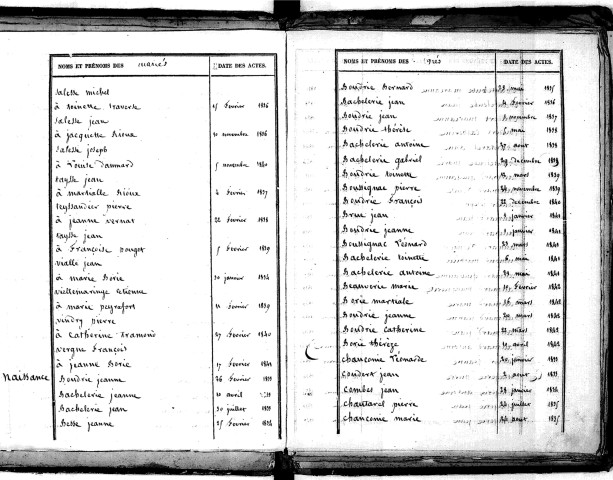 NOMS ET PRÉNOMS DES mariés DATE DES ACTES.
Salesse michel
à toinette traverse 25 février 1836
Salesse jean
à jacquette Rioux novembre 1836
Salesse joseph
à Louise dammard 5 novembre 1840
taysse jean
à martialle Rioux 4 février 1837
teyssandier pierre
à jeanne vernat 22 février 1838
taysse jean
à Françoise pouget 5 février 1839
vialle jean
à marie Borie 20 janvier 1834
viellemaringe etienne
à marie peyrafort 11 février 1839
vindry pierre
à Catherine Framond 27 février 1840
vergne françois
à jeanne Borie 17 février 1841
Naissance Boudrie jeanne 26 février 1833
Bachelerie jeanne 20 avril
Bachelerie jean 30 juillet 1833
Besse jeanne 25 février 1834
NOMS ET PRÉNOMS DES DATE DES ACTES.
Boudrie Bernard mai 1835
Bachelerie jean 4 février 1836
Boudrie jean novembre 1837
Boudrie thérèse mai 1838
Bachelerie antoine août 1838
Bachelerie gabriel 29 décembre 1838
Boudrie toinette mars 1839
Boussignac pierre 24 novembre 1839
Boudrie François 22 décembre 1840
Breu jean janvier 1841
Boudrie jeanne janvier 1841
Boussignac Léonard 23 mars 1841
Bachelerie toinette 6 mai 1841
Bachelerie antoine mai 1841
Beauverie marie février 1842
Borie martiale 16 mars 1842
Boudrie jeanne 20 mars 1842
Boudrie catherine 22 mars 1842
Borie thérèze avril 1842
Chanconie Léonarde janvier 1833
Coudert jean août 1833
Combes jean 28 janvier 1834
Chautarel pierre 22 juillet 1835
Chanconie marie août 1835